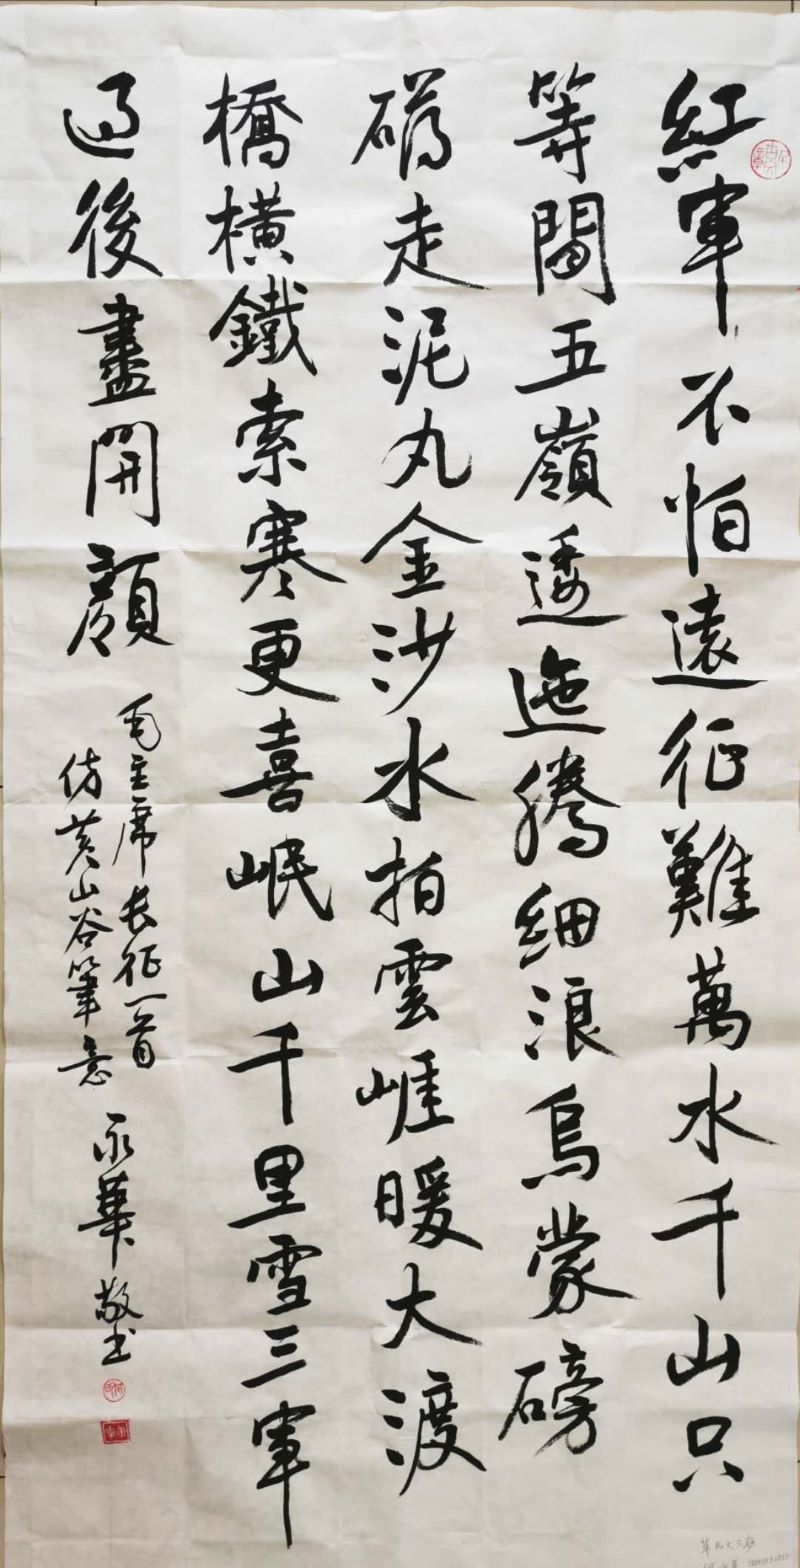 紅軍不怕遠征難萬水千山只
等閒五嶺逶迤騰細浪烏蒙磅
礴走泥丸金沙水拍雲崖暖大渡
橋橫鐵索寒更喜岷山千里雪三軍
過後盡開顏
毛主席長征一首
仿黃山谷筆意
永華敬書